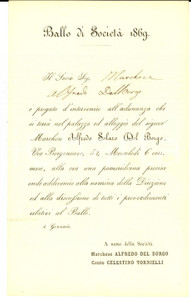 Ballo di Società 1869.
Il Socio Sig. Marchese
Alfredo Dalborgo
è pregato d'intervenire all'adunanza che
si terrà nel palazzo ed alloggio del signor
Marchese Alfredo Silaro Del Borgo,
Via Borgonuovo, 52 Mercoledì 6 corrente,
alla ora una pomeridiana precisa
onde addivenire alla nomina della Direzione
ed alla discussione di tutti i provvedimenti
relativi al Ballo.
4 Gennaio
A nome della Società
Marchese ALFREDO DEL BORGO
Conte CELESTINO TORRIELLI